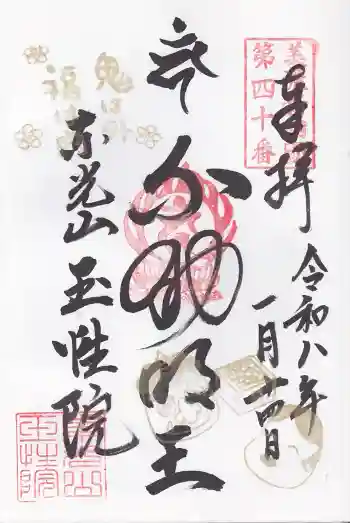 奉拝
令和八年
一月廿四日
不動明王
東光山
玉性院
第四十番
鬼は外
福は内
玉性院